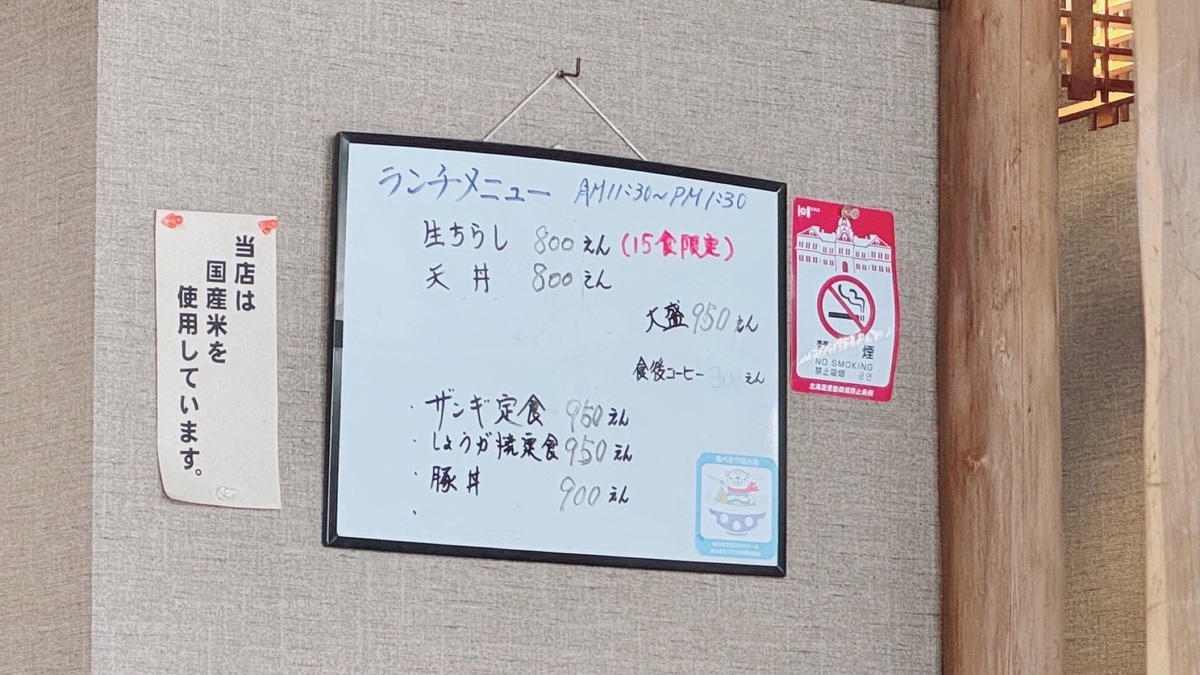 当店は
国産米を
使用しています。
ランチメニュー AM11:30~PM1:30
生ちらし 800えん (15食限定)
天丼 800えん
大盛950えん
食後コーヒー 300えん
・ザンギ定食 950えん
・しょうが焼定食950えん
・豚丼 900えん
・
禁煙
NO SMOKING
禁止吸烟 금연
北海道受動喫煙防止条例